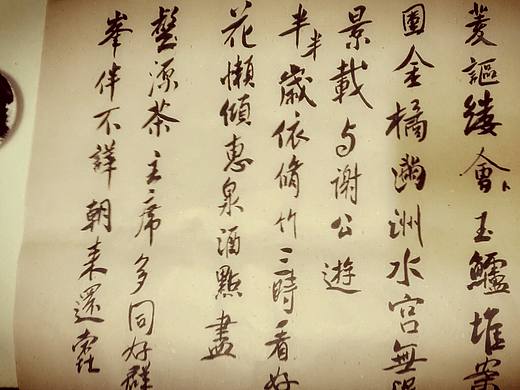 菱謳縷會玉鱸堆案
團金橘滿洲水宫無
景載与謝公遊
半半歲依脩竹三時看好
花懶傾惠泉酒點盡
壑源茶主席多同好群
峯伴不譁朝来還